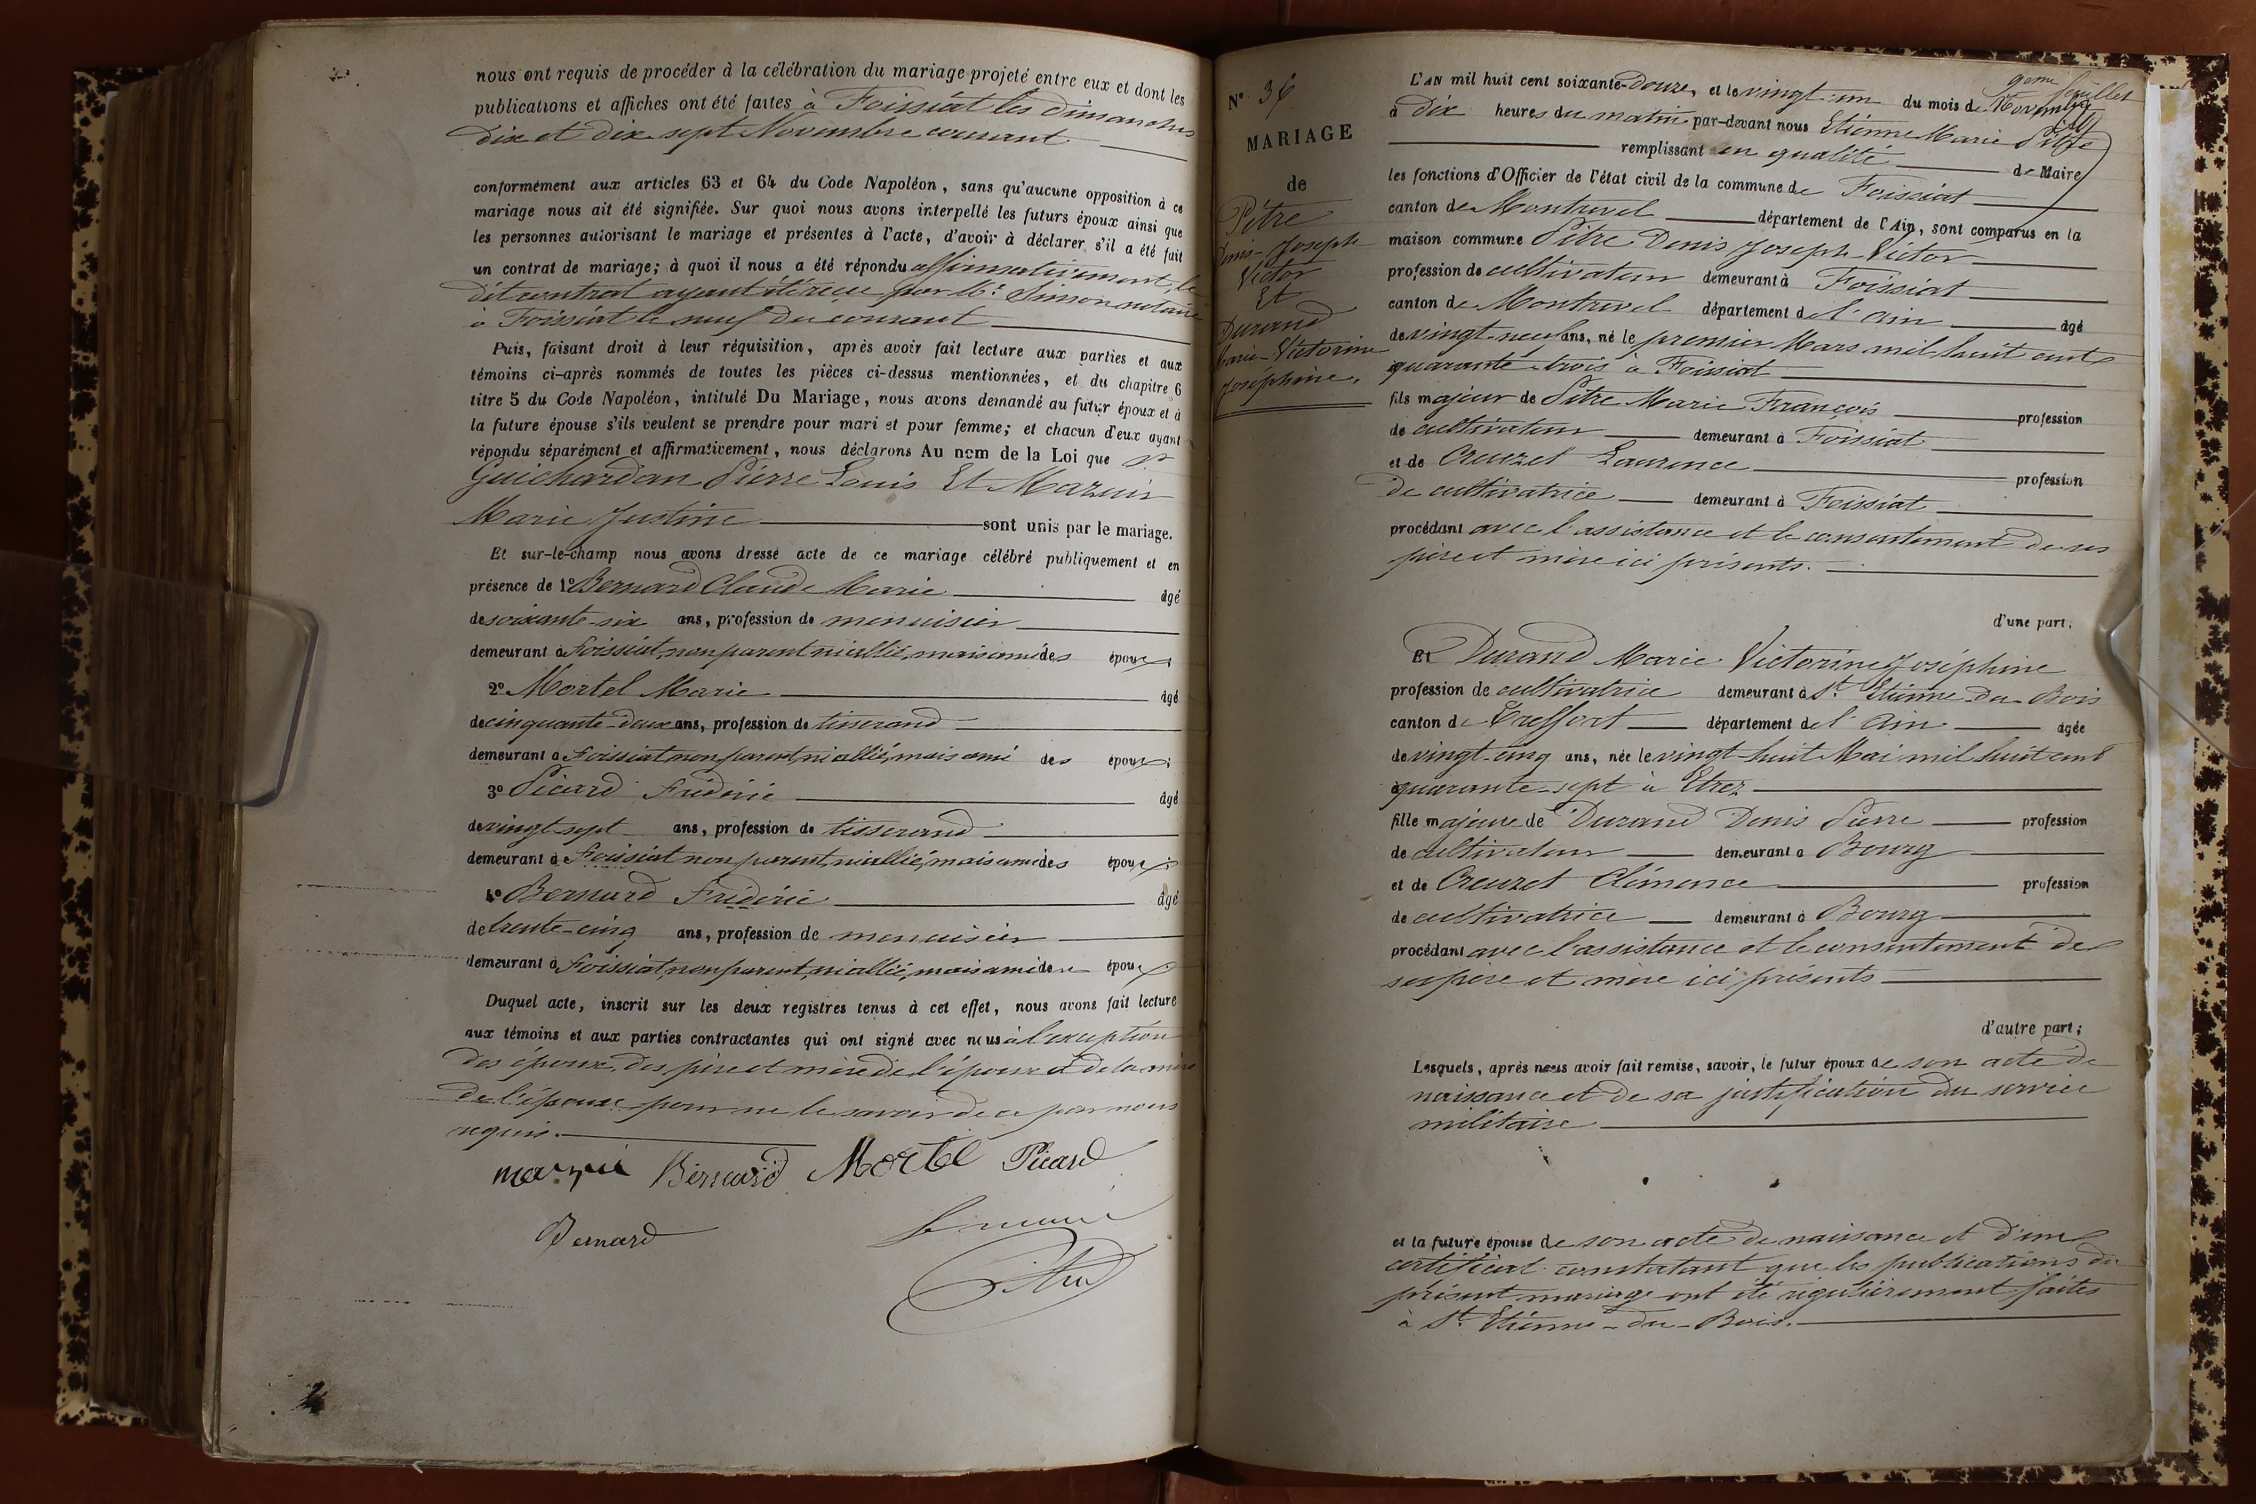 nous ont requis de procéder à la célébration du mariage projeté entre eux et dont les
publications et affiches ont été faites à Foissiat les dimanches
dix et dix sept Novembre courant
conformément aux articles 63 et 64 du Code Napoléon, sans qu'aucune opposition à ce
mariage nous ait été signifiée. Sur quoi nous avons interpellé les futurs époux ainsi que
les personnes autorisant le mariage et présentes à l'acte, d'avoir à déclarer s'il a été fait
un contrat de mariage; à quoi il nous a été répondu affirmativement, le
dit contrat ayant été reçu par Me. Simon notaire
à Foissiat le neuf du courant
Puis, faisant droit à leur réquisition, après avoir fait lecture aux parties et aux
témoins ci-après nommés de toutes les pièces ci-dessus mentionnées, et du chapitre 6
titre 5 du Code Napoléon, intitulé Du Mariage, nous avons demandé au futur époux et à
la future épouse s'ils veulent se prendre pour mari et pour femme; et chacun d'eux ayant
répondu séparément et affirmativement, nous déclarons Au nom de la Loi que
Guichardan Pierre Louis Et Mazuir
Marie Justine sont unis par le mariage.
Et sur-le-champ nous avons dressé acte de ce mariage célébré publiquement et en
présence de 1º Bernard Claude Marie âgé
de soixante-six ans, profession de menuisier
demeurant à Foissiat, non parent ni allié, mais ami des époux;
2º Mortel Marie âgé
de cinquante-deux ans, profession de tisserand
demeurant à Foissiat non parent, ni allié, mais ami des époux;
3º Picard Frédéric âgé
de vingt sept ans, profession de tisserand
demeurant à Foissiat non parent, ni allié, mais ami des époux;
4º Bernard Frédéric âgé
de trente-cinq ans, profession de menuisier
demeurant à Foissiat, non parent, ni allié, mais ami des époux.
Duquel acte, inscrit sur les deux registres tenus à cet effet, nous avons fait lecture
aux témoins et aux parties contractantes qui ont signé avec nous à l'exception
des époux, des père et mère de l'époux et de la mère
de l'épouse pour ne le savoir de ce par nous
requis.
mazuir Bernard Mortel Picard
Bernard Le maire
Pitre
9eme feuillet
Nº 36
MARIAGE
de
Pitre
Denis-Joseph
Victor
Et
Durand
Marie-Victorine
Joséphine.
L'AN mil huit cent soixante-Douze, et le vingt-un du mois de Novembre
à dix heures du matin par-devant nous Etienne Marie Pitre
remplissant en qualité de Maire
les fonctions d'Officier de l'état civil de la commune de Foissiat
canton de Montrevel département de l'Ain, sont comparus en la
maison commune Pitre Denis Joseph-Victor
profession de cultivateur demeurant à Foissiat
canton de Montrevel département de l'ain âgé
de vingt-neuf ans, né le premier Mars mil huit cent
quarante-trois à Foissiat
fils majeur de Pitre Marie François profession
de cultivateur demeurant à Foissiat
et de Creuzet Laurence profession
de cultivatrice demeurant à Foissiat
procédant avec l'assistance et le consentement de ses
père et mère ici présents.
d'une part;
Et Durand Marie Victorine Joséphine
profession de cultivatrice demeurant à St. Etienne-du-Bois
canton de Treffort département de l'ain âgée
de vingt-cinq ans, née le vingt-huit Mai mil huit cent
quarante-sept à Etrez
fille majeure de Durand Denis Pierre profession
de cultivateur demeurant à Bourg
et de Creuzet Clémence profession
de cultivatrice demeurant à Bourg
procédant avec l'assistance et le consentement de
ses père et mère ici présents
d'autre part;
Lesquels, après nous avoir fait remise, savoir, le futur époux de son acte de
naissance et de sa justification du service
militaire
et la future épouse de son acte de naissance et d'un
certificat constatant que les publications du
présent mariage ont été régulièrement faites
à St. Etienne-du-Bois.